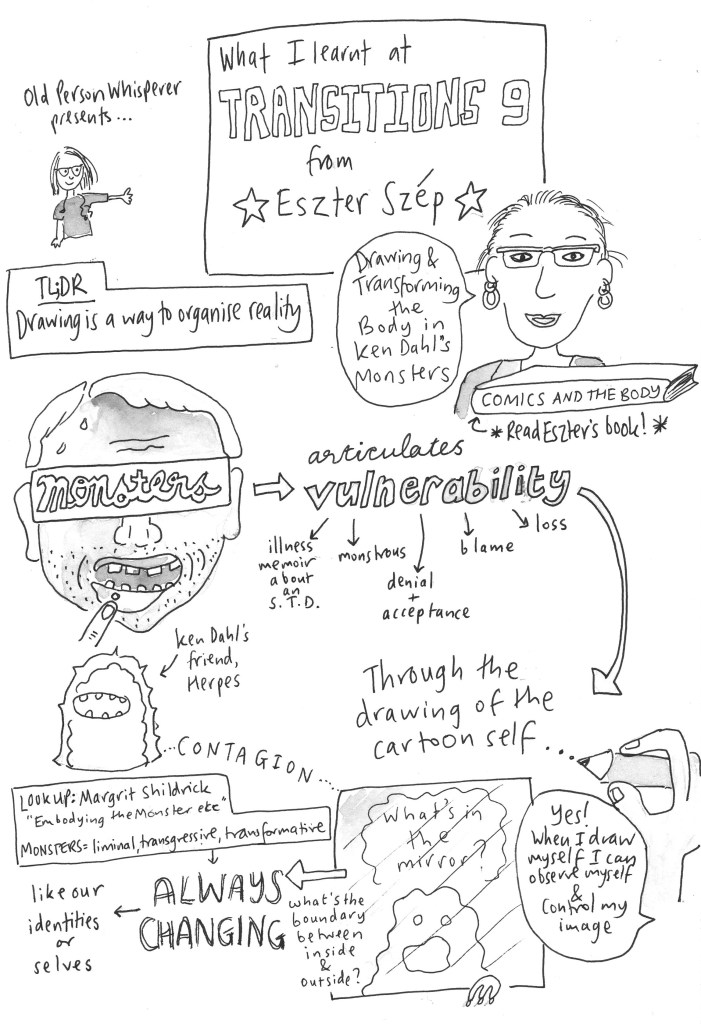 What I learnt at
TRANSITIONS 9
from
Eszter Szép
Old Person Whisperer
presents...
TL;DR
Drawing is a way to organise reality
Drawing &
Transforming
the
Body in
Ken Dahl's
Monsters
COMICS AND THE BODY
*Read Eszter's book! *
monsters
articulates
vulnerability
illness
memoir
about
an
S.T.D.
monstrous
denial
+
acceptance
blame
loss
Ken Dahl's
friend,
Herpes
Through the
drawing of the
cartoon self...
CONTAGION
LOOK UP: Margrit Shildrick
"Embodying the Monster etc"
MONSTERS = liminal, transgressive, transformative
What's in
the
mirror?
Yes!
When I draw
myself I can
observe myself
&
Control my
image
ALWAYS
CHANGING
like our
identities
or
selves
what's the
boundary
between
inside
&
outside?